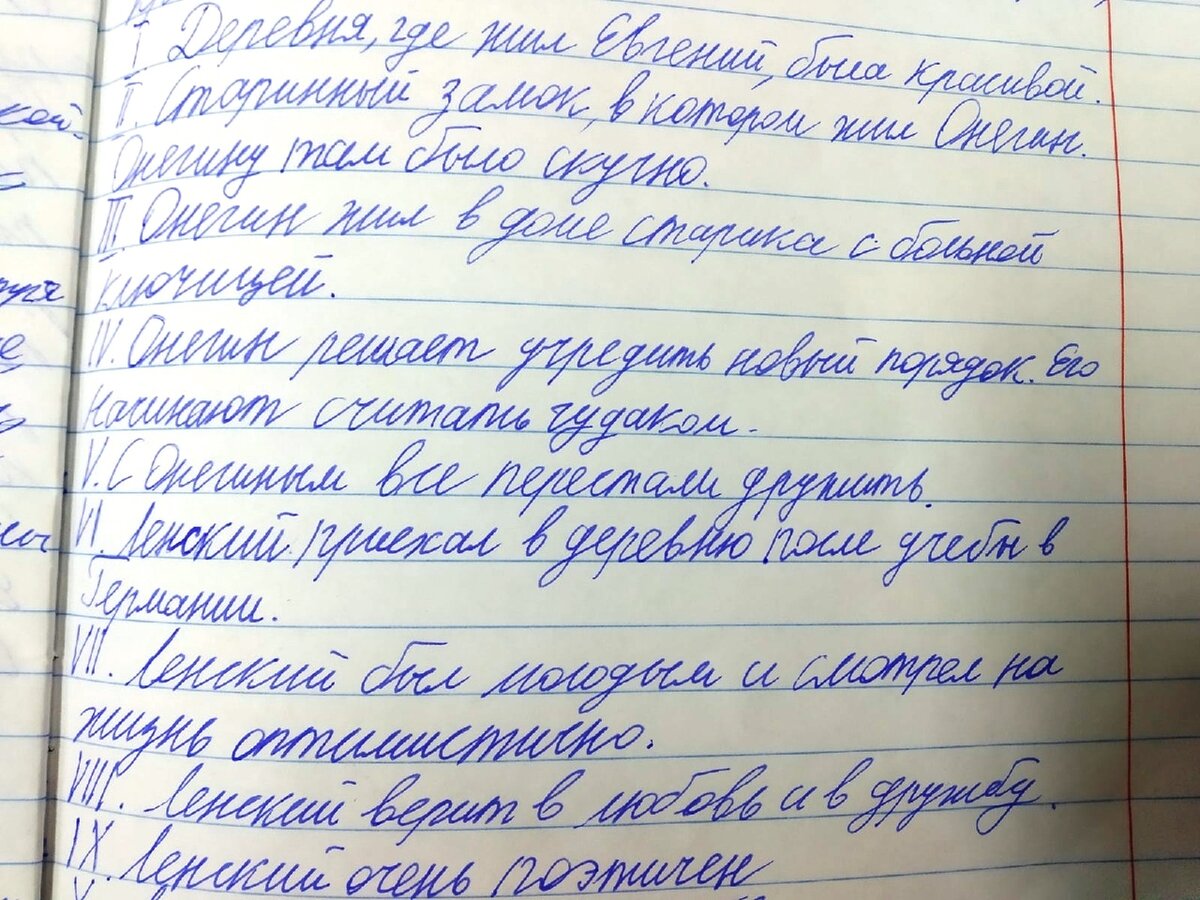 I Деревня, где жил Евгений, была красивой.
II. Старинный замок, в котором жил Онегин.
Онегину там было скучно.
III. Онегин жил в доме старика с больной
ключицей.
IV. Онегин решает учредить новый порядок. Его
начинают считать чудаком.
V. С Онегиным все перестали дружить.
VI. Ленский приехал в деревню после учебы в
Германии.
VII. Ленский был молодым и смотрел на
жизнь оптимистично.
VIII. Ленский верит в любовь и в дружбу.
IX. Ленский очень поэтичен